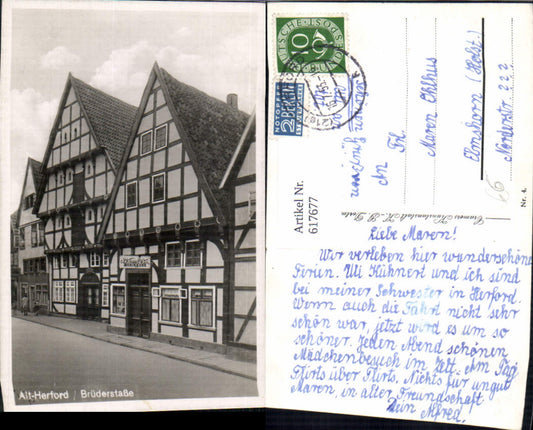 Alt-Herford / Brüderstaße
DEUTSCHE BUNDESPOST
10
NOTOPFER
2 BERLIN
STEUERMARKE
Artikel Nr.
617677
An Frl.
Maren Ohlhus
Elmshorn (Holst.)
Norderstr 222
Nr. 4.
Liebe Maren!
Wir verleben hier wunderschöne
Ferien. Uli Kühnert und ich sind
bei meiner Schwester in Herford.
Wenn auch die Fahrt nicht sehr
schön war, jetzt wird es um so
schöner. Jeden Abend schönen
Mädchenbesuch im Zelt. Am Tag
Flirts über Flirts. Nichts für ungut
Maren, in alter Freundschaft
Dein Alfred.